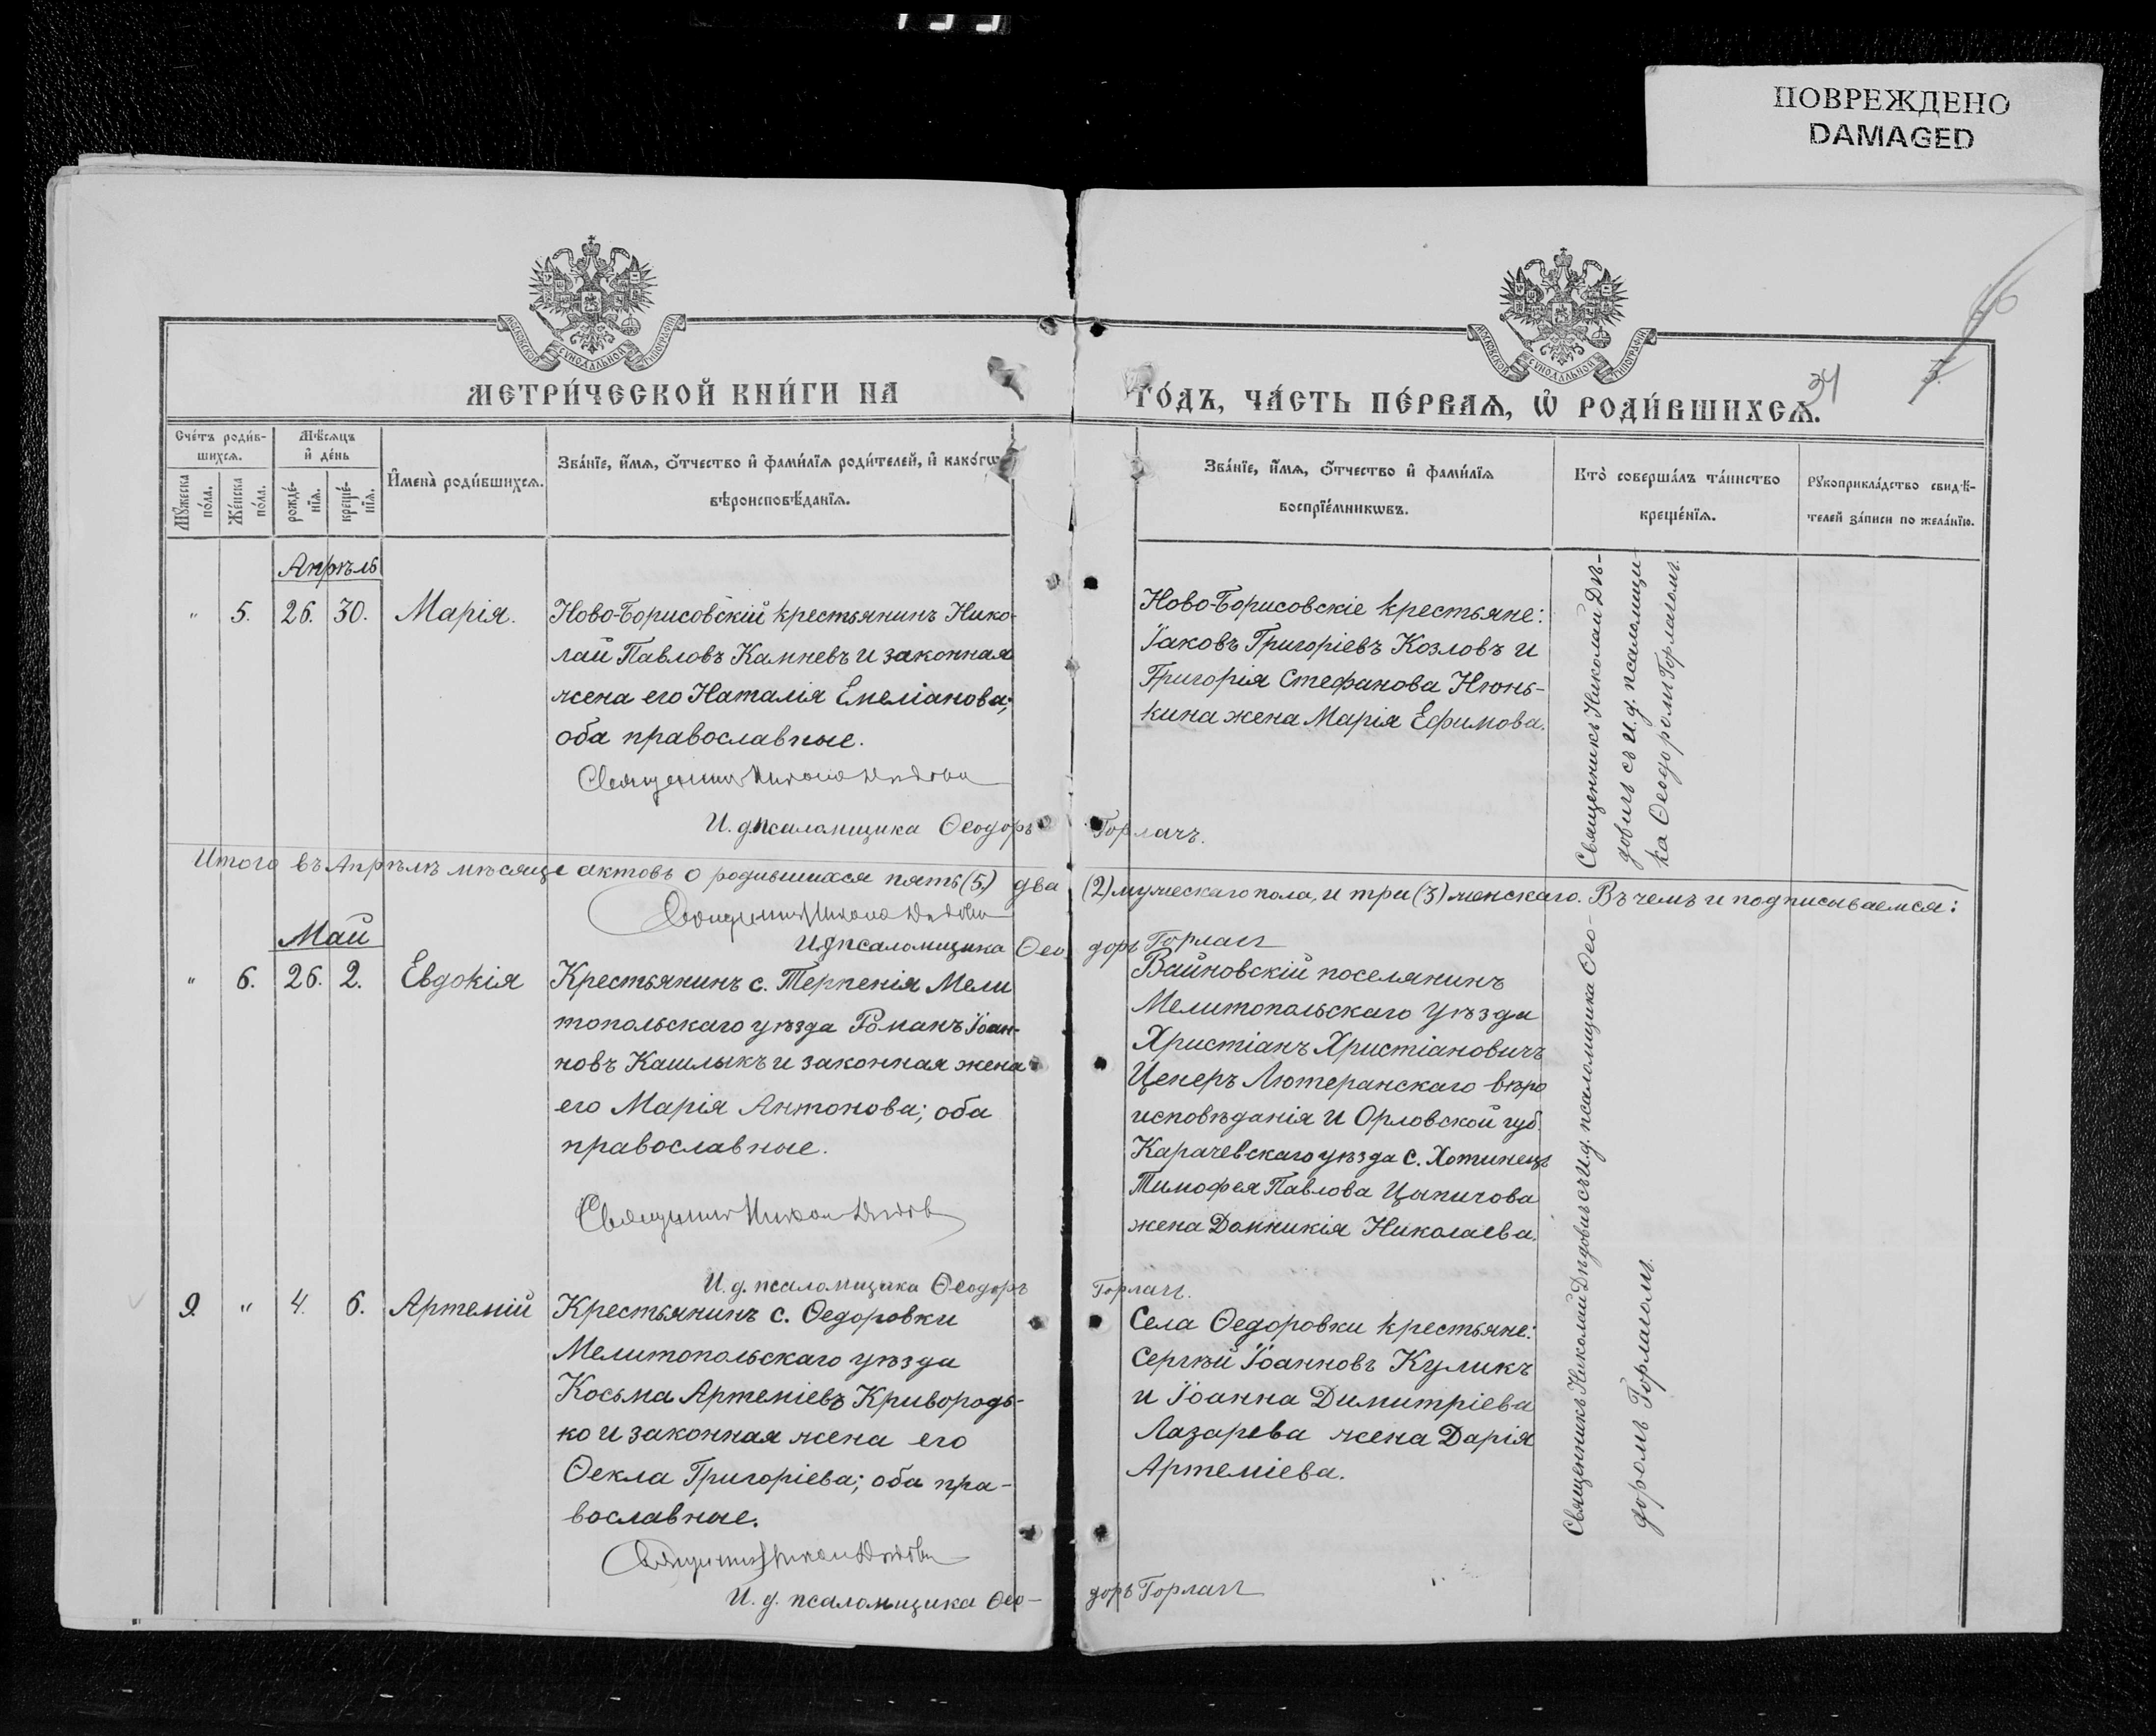 ПОВРЕЖДЕНО
DAMAGED
МОСКОВСКОЙ СѴНОДАЛЬНОЙ ТИПОГРАФІИ
МОСКОВСКОЙ СѴНОДАЛЬНОЙ ТИПОГРАФІИ
34
5.
МЕТРИ́ЧЕСКОЙ КНИ́ГИ НА
ГО́ДЪ, ЧА́СТЬ ПЕ́РВАѦ, Ѽ РОДИ́ВШИХСѦ.
Сче́тъ роди́в-
шихсѧ.
Мꙋ́жеска по́ла.
Же́нска по́ла.
Мѣ́сѧцъ
и҆ де́нь
рожде́-
нїѧ.
креще́-
нїѧ.
И҆мена̀ роди́вшихсѧ.
Зва́нїе, и҆́мѧ, ѻ҆́тчество и҆ фами́лїѧ роди́телей, и҆ како́гѡ
вѣроисповѣ́данїѧ.
Зва́нїе, и҆́мѧ, ѻ҆́тчество и҆ фами́лїѧ
воспрїе́мникѡвъ.
Кто̀ соверша́лъ та́инство
креще́нїѧ.
Рꙋкоприкла́дство свидѣ́-
телей за́писи по жела́нїю.
Апрѣль
" 5. 26. 30. Марія.
Ново-Борисовскій крестьянинъ Нико-
лай Павловъ Камневъ и законная
жена его Наталія Емеліанова;
оба православные.
Священникъ Николай Дѣдовичъ
И. д. псаломщика Ѳеодоръ Горлачъ.
Ново-Борисовскіе крестьяне:
Іаковъ Григоріевъ Козловъ и
Григорія Стефанова Нюнь-
кина жена Марія Ефимова.
Священникъ Николай Дѣ-
довичъ съ и. д. псаломщи-
ка Ѳеодоромъ Горлачомъ.
Итого въ Апрѣлѣ мѣсяцѣ актовъ о родившихся пять (5) два (2) мужескаго пола, и три (3) женскаго. Въ чемъ и подписываемся:
Священникъ Николай Дѣдовичъ
И. д. псаломщика Ѳеодоръ Горлачъ
Май
" 6. 26. 2. Евдокія
Крестьянинъ с. Терпенія Мели
топольскаго уѣзда Романъ Іоан-
новъ Кашлыкъ и законная жена
его Марія Антонова; оба
православные.
Священникъ Николай Дѣдовичъ
И. д. псаломщика Ѳеодоръ Горлачъ.
Вайновскій поселянинъ
Мелитопольскаго уѣзда
Христіанъ Христіановичъ
Ценеръ Лютеранскаго вѣро
исповѣданія и Орловской губ.
Карачевскаго уѣзда с. Хотинецъ
Тимофея Павлова Цыпичова
жена Домникія Николаева.
9. " 4. 6. Артемій
Крестьянинъ с. Ѳедоровки
Мелитопольскаго уѣзда
Косьма Артеміевъ Кривородь-
ко и законная жена его
Ѳекла Григоріева; оба пра-
вославные.
Священникъ Николай Дѣдовичъ
И. д. псаломщика Ѳео-
доръ Горлачъ
Села Ѳедоровки крестьяне:
Сергѣй Іоанновъ Куликъ
и Іоанна Димитріева
Лазарева жена Дарія
Артеміева.
Священникъ Николай Дѣдовичъ съ и. д. псаломщика Ѳео-
доромъ Горлачомъ.